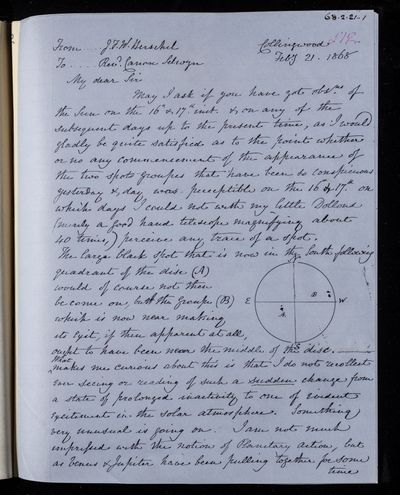 68.2.21.1
From J.F.W. Herschel Collingwood
To Revd. Canon Selwyn Feby 21. 1868
My dear Sir
May I ask if you have got obsns of
the Sun on the 16th & 17th inst. & on any of the
subsequent days up to the present time, as I would
gladly be quite satisfied as to the point whether
or no any commencement of the appearance of
the two spots groupes that have been so conspicuous
yesterday & day was perceptible on the 16 & 17th on
which days I could not with my little Dollond
(merely a good hand telescope magnifying about
40 times,) perceive any trace of a spot.
The large black spot that is now in the South following
quadrant of the disc (A)
would of course not then
be come on, but the groupe (B)
which is now near making
its exit, if then apparent at all,
ought to have been near the middle of the disc.
What
makes me curious about this is that I do not recollect
ever seeing or reading of such a sudden change from
a state of prolonged inactivity to one of evident
excitement in the solar atmosphere. Something
very unusual is going on. I am not much
impressed with the notion of Planetary action, but
as Venus & Jupiter have been pulling together for some
time
E
W
A
B